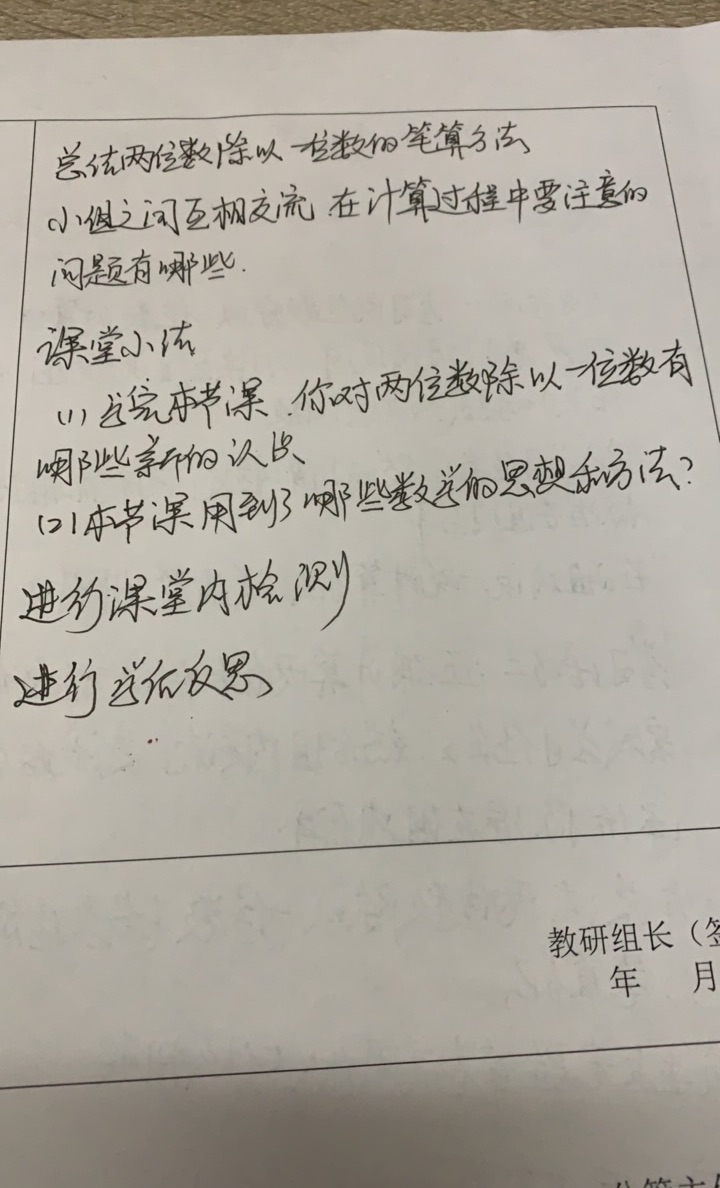 总结两位数除以一位数的笔算方法
小组之间互相交流 在计算过程中要注意的
问题有哪些.
课堂小结
(1) 学完本节课.你对两位数除以一位数有
哪些新的认识、
(2)本节课用到了哪些数学的思想和方法?
进行课堂内检测
进行学后反思
教研组长（签
年 月